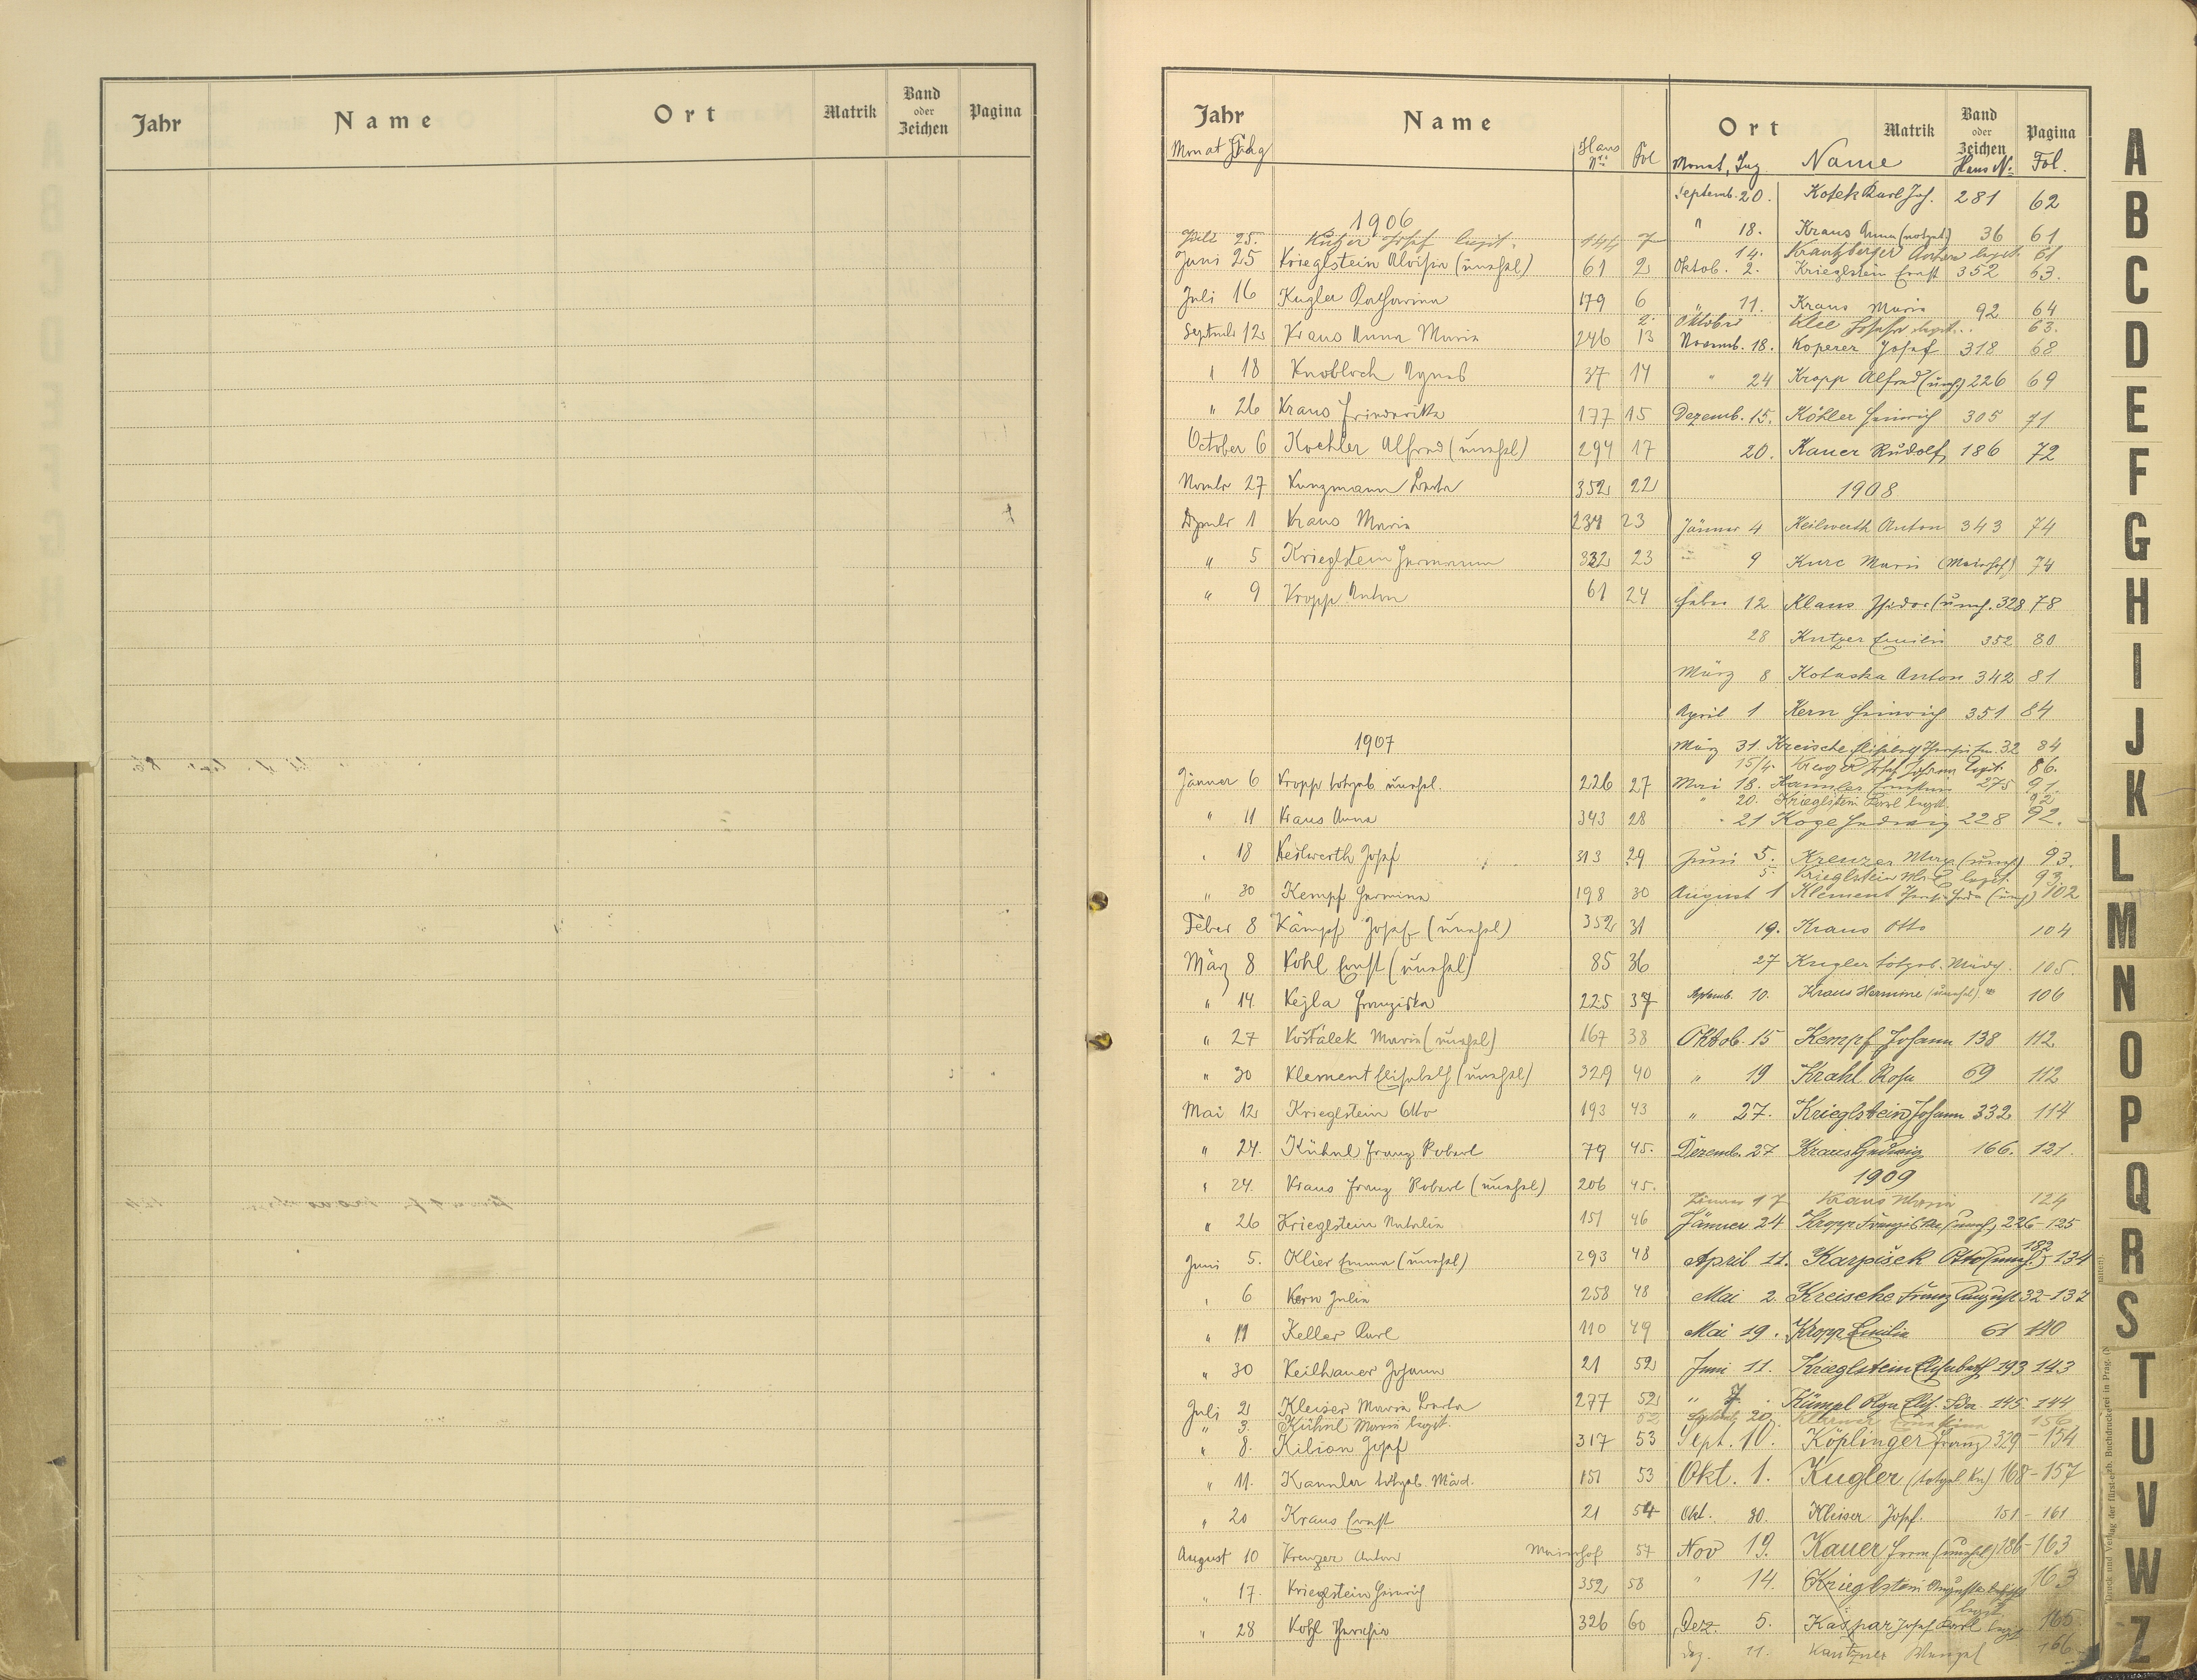 Jahr Name Ort Matrik Band oder Zeichen Pagina
Jahr Name Ort Matrik Band oder Zeichen Pagina
Monat Tag Haus Nr. Fol Monat, Tag Name Haus N. Fol.
1906
Juli 25. Kutzer Josef legit. 144 7
Juni 25 Krieglstein Aloisia (unehel) 61 2
Juli 16 Kugler Katharina 179 6
Septmbr 12 Kraus Anna Maria 246 13
" 18 Knobloch Agnes 37 14
" 26 Kraus Friederika 177 15
October 6 Koehler Alfred (unehel) 294 17
Novmbr 27 Kunzmann Berta 352 22
Dzmbr 1 Kraus Maria 234 23
" 5 Krieglstein Hermann 332 23
" 9 Kropp Anton 61 24
1907
Jänner 6 Kropp totgeb. unehel. 226 27
" 11 Kraus Anna 343 28
" 18 Keilwerth Josef 313 29
" 30 Kempf Hermine 198 30
Feber 8 Kämpf Josef (unehel) 352 31
März 8 Kohl Ernst (unehel) 85 36
" 14 Kejla Franziska 225 37
" 27 Košťálek Maria (unehel) 167 38
" 30 Klement Elisabeth (unehel) 329 40
Mai 12 Krieglstein Otto 193 43
" 24. Kühnl Franz Robert 79 45.
" 24. Kraus Franz Robert (unehel) 206 45.
" 26 Krieglstein Natalia 151 46
Juni 5. Klier Emma (unehel) 293 48
" 6 Kern Julia 258 48
" 11 Keller Karl 110 49
" 30 Keilhauer Johann 21 52
Juli 2 Kleiser Maria Berta 277 52
" 3. Kühnl Maria legit. 52
" 8. Kilian Josef 317 53
" 11. Kannler totgeb. Mäd. 151 53
" 20 Kraus Ernst 21 54
August 10 Kreuzer Anton Maierhof 57
" 17. Krieglstein Heinrich 352 58
" 28 Kohl Theresia 326 60
Septemb. 20. Kotek Karl Joh. 281 62
" 18. Kraus Anna (notget) 36 61
14. Krautzberger Anton legit. 61
Oktob. 2. Krieglstein Ernst 352 63.
" 11. Kraus Maria 92 64
2. Oktober Klee Josefa legit. 63.
Novemb. 18. Koperer Josef 318 68
" 24 Kropp Alfred (uneh.) 226 69
Dezemb. 15. Köhler Heinrich 305 71
20. Kauer Rudolf 186 72
1908
Jänner 4 Keilwerth Anton 343 74
" 9 Kurc Maria (Maierhof) 74
Feber 12 Klaus Isidor (uneh. 328 78
28 Kutzer Emilie 352 80
März 8 Kotaska Anton 342 81
April 1 Kern Heinrich 351 84
März 31. Kreische Elisabeth 32 84
15/4. Josef Johann legit. 86.
Mai 18. Kannler 275 91.
" 20. Krieglstein Karl legit. 92
" 21 Hedwig 228 92.
Juni 5. Kreuzer Marie (uneh) 93.
5. Krieglstein legit. 93
August 1 Klement (uneh) 102
19. Kraus Otto 104
27 Kugler totgeb. Mädch. 105.
Septemb. 10. Kraus Hermine (unehel) 106
Oktob. 15 Kempf Johann 138 112
" 19 Krahl Rosa 69 112
" 27. Krieglstein Johann 332 114
Dezemb. 27 Kraus Hedwig 166. 121.
1909
Jänner 17 Kraus Maria 124
Jänner 24 Kropp Franziska (uneh.) 226-125
April 11. Karpišek Otto (uneh.) 182 134
Mai 2. Kreische Franz August 32-137
Mai 19. Kropp Emilia 61 140
Juni 11. Krieglstein Elisabeth 193-143
" 7. Kümpl Olga Elis. Ida 145. 144
20. 156
Sept. 10. Köplinger Franz 329-154
Okt. 1. Kugler (totgeb. Kn) 168-157
Okt. 30. Kleiser Josef. 151-161
Nov 19. Kauer (unehel) 186-163
" 14. Krieglstein 163
Dez. 5. Kaspar Josef Karl legit 165
Dez. 11. Wenzel 166
A
B
C
D
E
F
G
H
I
J
K
L
M
N
O
P
Q
R
S
T
U
V
W
Z
Druck und Verlag der fürst-erzb. Buchdruckerei in Prag.